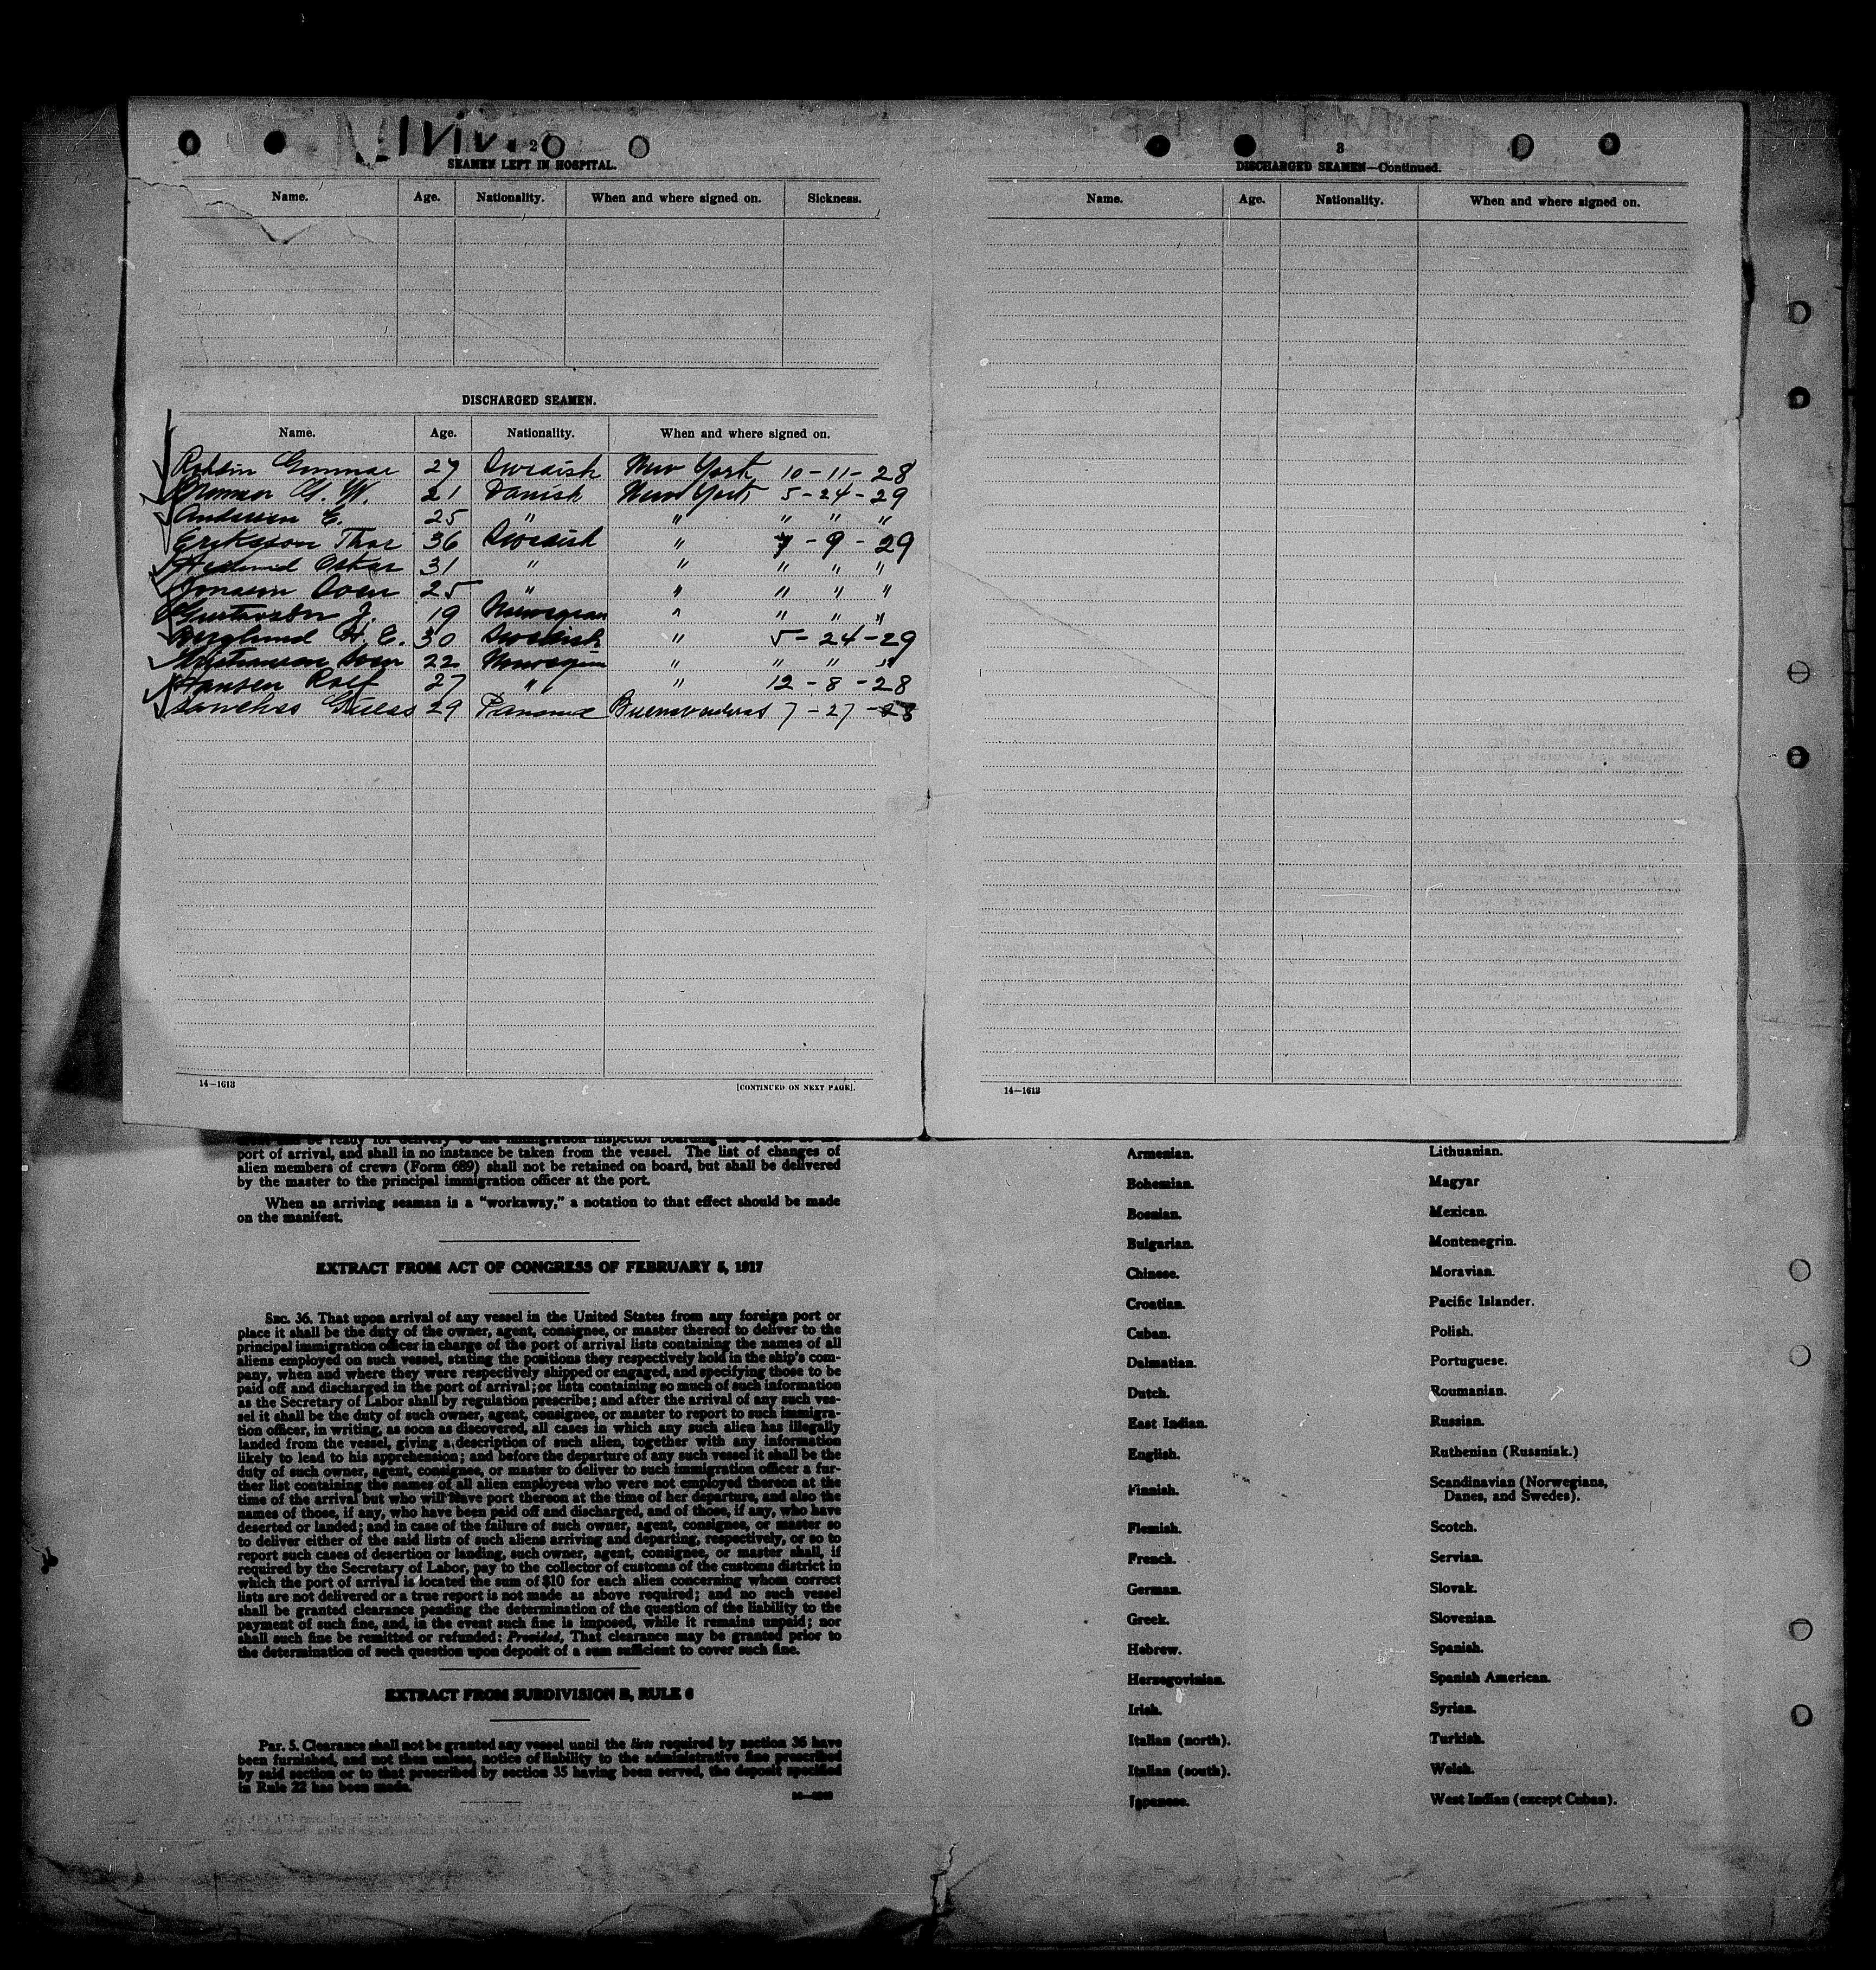 2
SEAMEN LEFT IN HOSPITAL.
Name. Age. Nationality. When and where signed on. Sickness.
DISCHARGED SEAMEN.
Name. Age. Nationality. When and where signed on.
Gunnar 27 Swedish New York 10-11-28
21 Danish New York 5-24-29
Andersen E. 25 " " " " "
Eriksson Thor 36 Swedish " 7-9-29
Oskar 31 " " " " "
Sven 25 " " " " "
Gustavson J. 19 Norwegian " " " "
Berglund H. E. 30 Swedish " 5-24-29
Sven 22 Norwegian " " " "
Hansen Rolf 27 " " 12-8-28
Sanches 29 Panama 7-27-28
14—1613
[CONTINUED ON NEXT PAGE].
3
DISCHARGED SEAMEN—Continued.
Name. Age. Nationality. When and where signed on.
14—1613
be ready for delivery to the immigration inspector boarding the vessel at the
port of arrival, and shall in no instance be taken from the vessel. The list of changes of
alien members of crews (Form 689) shall not be retained on board, but shall be delivered
by the master to the principal immigration officer at the port.
When an arriving seaman is a “workaway,” a notation to that effect should be made
on the manifest.
EXTRACT FROM ACT OF CONGRESS OF FEBRUARY 5, 1917
SEC. 36. That upon arrival of any vessel in the United States from any foreign port or
place it shall be the duty of the owner, agent, consignee, or master thereof to deliver to the
principal immigration officer in charge of the port of arrival lists containing the names of all
aliens employed on such vessel, stating the positions they respectively hold in the ship's com-
pany, when and where they were respectively shipped or engaged, and specifying those to be
paid off and discharged in the port of arrival; or lists containing so much of such information
as the Secretary of Labor shall by regulation prescribe; and after the arrival of any such ves-
sel it shall be the duty of such owner, agent, consignee, or master to report to such immigra-
tion officer, in writing, as soon as discovered, all cases in which any such alien has illegally
landed from the vessel, giving a description of such alien, together with any information
likely to lead to his apprehension; and before the departure of any such vessel it shall be the
duty of such owner, agent, consignee, or master to deliver to such immigration officer a fur-
ther list containing the names of all alien employees who were not employed thereon at the
time of the arrival but who will leave port thereon at the time of her departure, and also the
names of those, if any, who have been paid off and discharged, and of those, if any, who have
deserted or landed; and in case of the failure of such owner, agent, consignee, or master so
to deliver either of the said lists of such aliens arriving and departing, respectively, or so to
report such cases of desertion or landing, such owner, agent, consignee, or master shall, if
required by the Secretary of Labor, pay to the collector of customs of the customs district in
which the port of arrival is located the sum of $10 for each alien concerning whom correct
lists are not delivered or a true report is not made as above required; and no such vessel
shall be granted clearance pending the determination of the question of the liability to the
payment of such fine, and, in the event such fine is imposed, while it remains unpaid; nor
shall such fine be remitted or refunded: Provided, That clearance may be granted prior to
the determination of such question upon deposit of a sum sufficient to cover such fine.
EXTRACT FROM SUBDIVISION B, RULE 6
Par. 5. Clearance shall not be granted any vessel until the lists required by section 36 have
been furnished, and not then unless, notice of liability to the administrative fine prescribed
by said section or to that prescribed by section 35 having been served, the deposit specified
in Rule 22 has been made.
Armenian.
Bohemian.
Bosnian.
Bulgarian.
Chinese.
Croatian.
Cuban.
Dalmatian.
Dutch.
East Indian.
English.
Finnish.
Flemish.
French.
German.
Greek.
Hebrew.
Herzegovinian.
Irish.
Italian (north).
Italian (south).
Japanese.
Lithuanian.
Magyar
Mexican.
Montenegrin.
Moravian.
Pacific Islander.
Polish.
Portuguese.
Roumanian.
Russian.
Ruthenian (Russniak.)
Scandinavian (Norwegians,
Danes, and Swedes).
Scotch.
Servian.
Slovak.
Slovenian.
Spanish.
Spanish American.
Syrian.
Turkish.
Welsh.
West Indian (except Cuban).